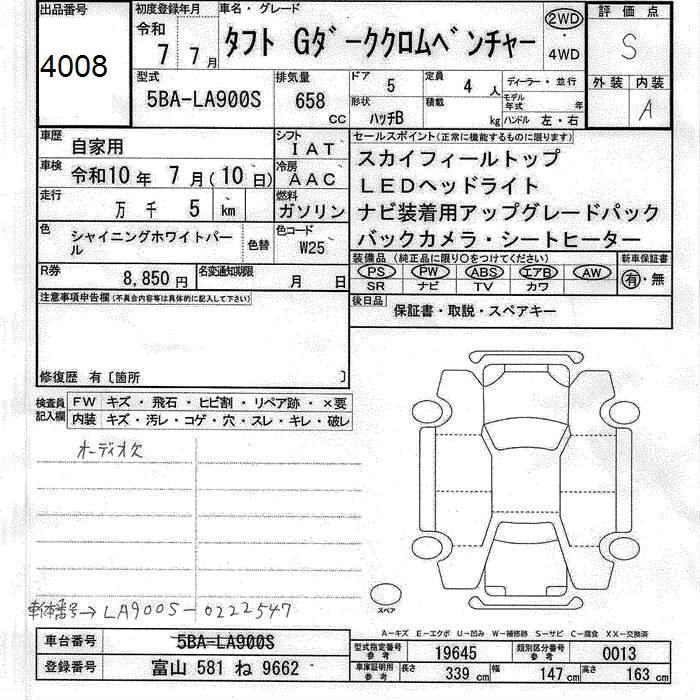 出品番号
4008
初度登録年月
令和
7 7月
車名・グレード
タフト Gダーククロムベンチャー
2WD
・
4WD
評価点
S
外装 内装
A
型式
5BA-LA900S
排気量
658 CC
ドア 5
定員 4 人
形状 ハッチB
積載 kg
ディーラー・並行
モデル年式 年
ハンドル 左・右
車歴
自家用
シフト
IAT
車検
令和10年 7月(10日)
冷房
AAC
走行
万 千 5 km
燃料
ガソリン
色
シャイニングホワイトパール
色替
色コード
W25
R券
8,850円
名変通知期限
月 日
セールスポイント(正常に機能するものに限ります)
スカイフィールトップ
LEDヘッドライト
ナビ装着用アップグレードパック
バックカメラ・シートヒーター
装備品(純正品に限り○をつけてください)
新車保証書
PS PW ABS エアB AW
SR ナビ TV カワ
有・無
後日品
保証書・取説・スペアキー
注意事項申告欄(不具合内容等は具体的に記入して下さい)
修復歴 有〔箇所 〕
検査員記入欄
FW キズ・飛石・ヒビ割・リペア跡・×要
内装 キズ・汚レ・コゲ・穴・スレ・キレ・破レ
オーディオ欠
車体番号→LA900S-0222547
スペア
A-キズ E-エクボ U-凹み W-補修跡 S-サビ C-腐食 XX-交換済
車台番号
5BA-LA900S
登録番号
富山 581 ね 9662
型式指定番号
参考
19645
類別区分番号
参考
0013
車庫証明用
参考
長さ 339 cm
幅 147 cm
高さ 163 cm